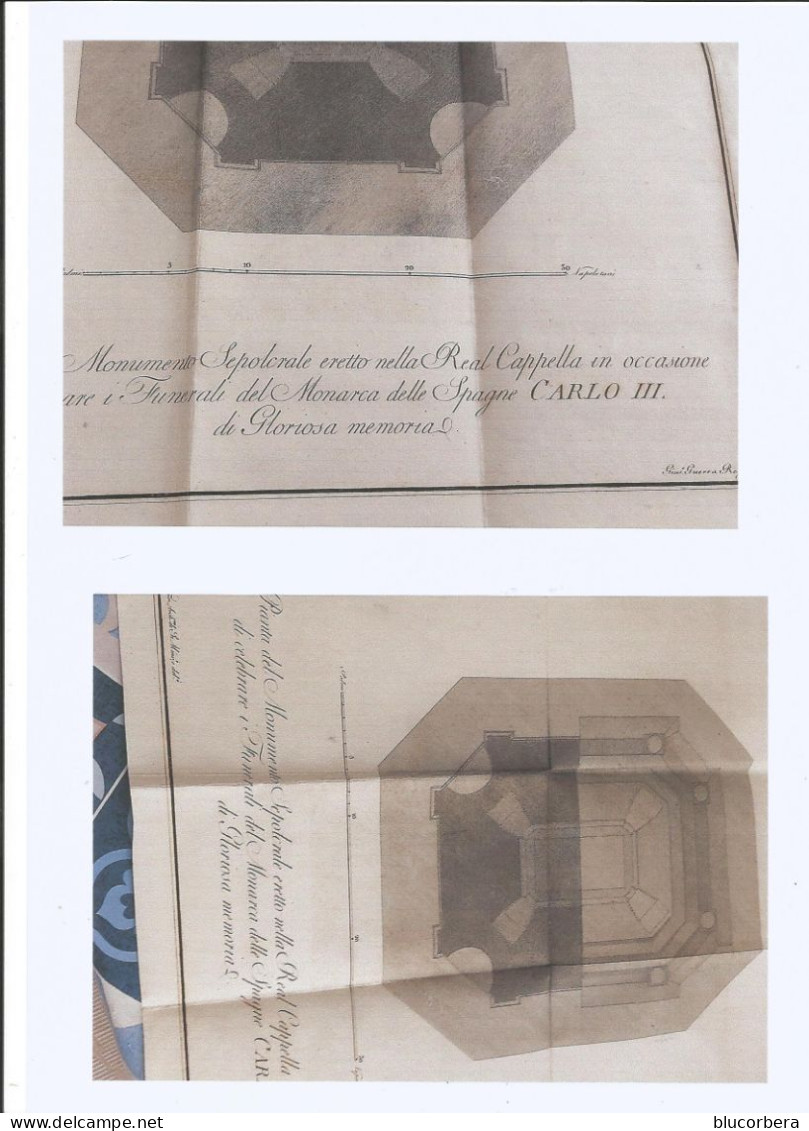 5 10 20 30 Napoletani
Monumento Sepolcrale eretto nella Real Cappella in occasione
are i Funerali del Monarca delle Spagne CARLO III.
di Gloriosa memoria.
Guerra
Pianta del Monumento Sepolcrale eretto nella Real Cappella
di celebrare i Funerali del Monarca delle Spagne CAR
di Gloriosa memoria
delcampe.net
blucorbera